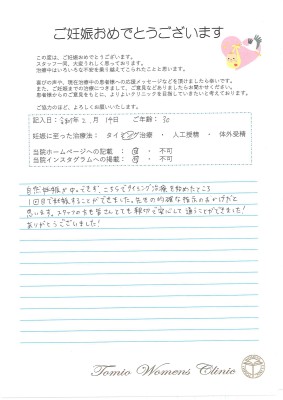 ご妊娠おめでとうございます
この度は、ご妊娠おめでとうございます。
スタッフ一同、大変うれしく思っております。
治療中はいろいろな不安を乗り越えてこられたことと思います。
喜びの声や、現在治療中の患者様への応援メッセージなどを頂けましたら幸いです。
また、ご妊娠までの治療につきまして、ご意見などありましたらお聞かせください。
患者様からのご意見をもとに、よりよいクリニックを目指していきたいと考えております。
ご協力のほど、よろしくお願いいたします。
記入日：令和 年 2 月 19 日 ご年齢：30
妊娠に至った治療法： タイミング治療 ・ 人工授精 ・ 体外受精
当院ホームページへの記載 ： 可 ・ 不可
当院インスタグラムへの掲載： 可 ・ 不可
自然妊娠が できず、こちらでタイミング治療を始めたところ
1回目で妊娠することができました。先生の的確な指示のおかげだと
思います。スタッフの方も皆さんとても親切で安心して通うことができました！
ありがとうございました！
Tomio Womens Clinic